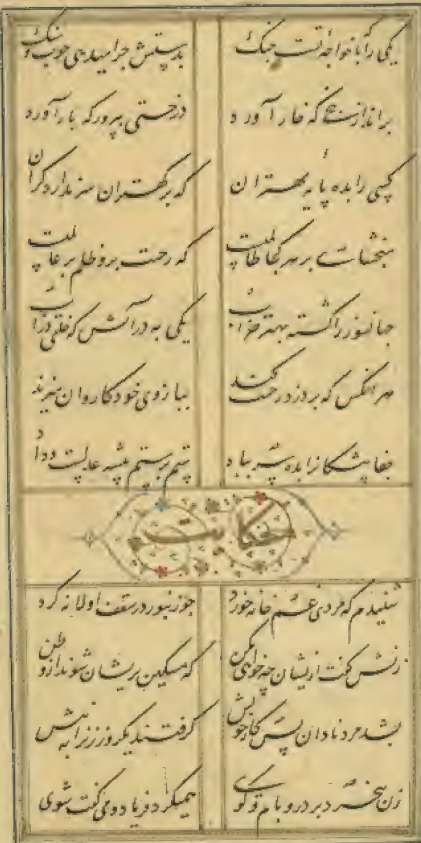 یکی را که با خواجه تست جنگ
بدستش چرا میدهی چوب و سنگ
برانداز بیخی که خار آورد
درختی بپرور که بار آورد
کسی را بده پایه مهتران
که بر کهتران سر ندارد گران
مبخشای بر هر کجا ظالمیست
که رحمت برو ظلم بر عالمیست
جهانسوز را کشته بهتر چراغ
یکی به در آتش که خلقی بداغ
هر آنکس که بر دزد رحمت کند
ببازوی خود کاروان میزند
جفاپیشگانرا بده سر بباد
ستم بر ستم پیشه عدلست و داد
حکایت
شنیدم که مردی غم خانه خورد
چو زنبور در سقف او لانه کرد
زنش گفت ازیشان چه خواهی مکن
که مسکین پریشان شوند از وطن
بشد مرد نادان پس کار خویش
گرفتند یکروز زن را به نیش
زن بیخرد بر در و بام و کوی
همیکرد فریاد و می گفت شوی